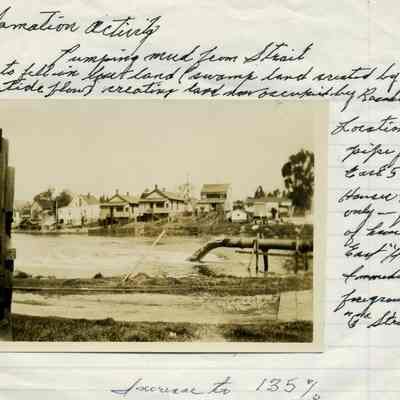 amation Activity
Pumping mud from Strait
to fill in waste land (swamp land created by
tide flow) creating land now occupied by
Location
pipe
East 5
Houses
only —
of
East "
Immed
foregrou
"E" Str
Increase to 135%